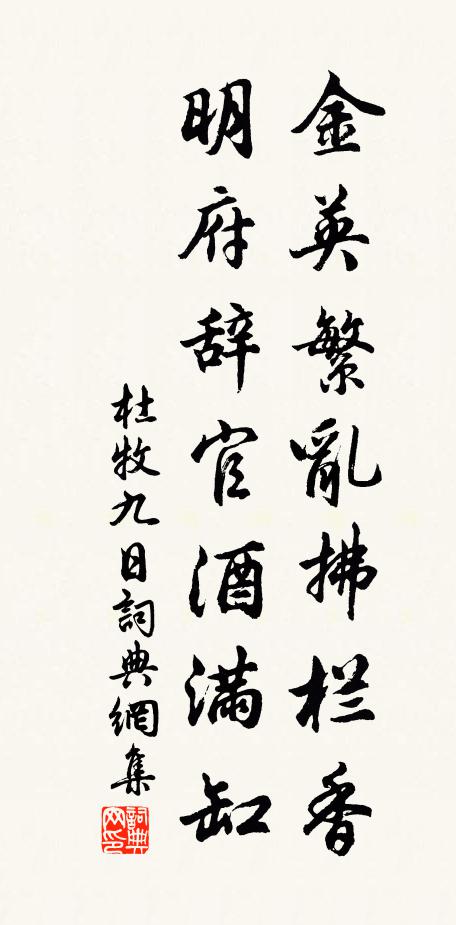 金英繁亂拂栏香
明府辞官酒满缸
杜牧九日詞典網集
詞典网印